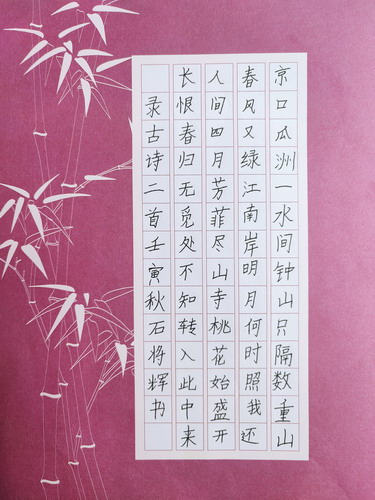 京口瓜洲一水间钟山只隔数重山
春风又绿江南岸明月何时照我还
人间四月芳菲尽山寺桃花始盛开
长恨春归无觅处不知转入此中来
录古诗二首壬寅秋石将辉书